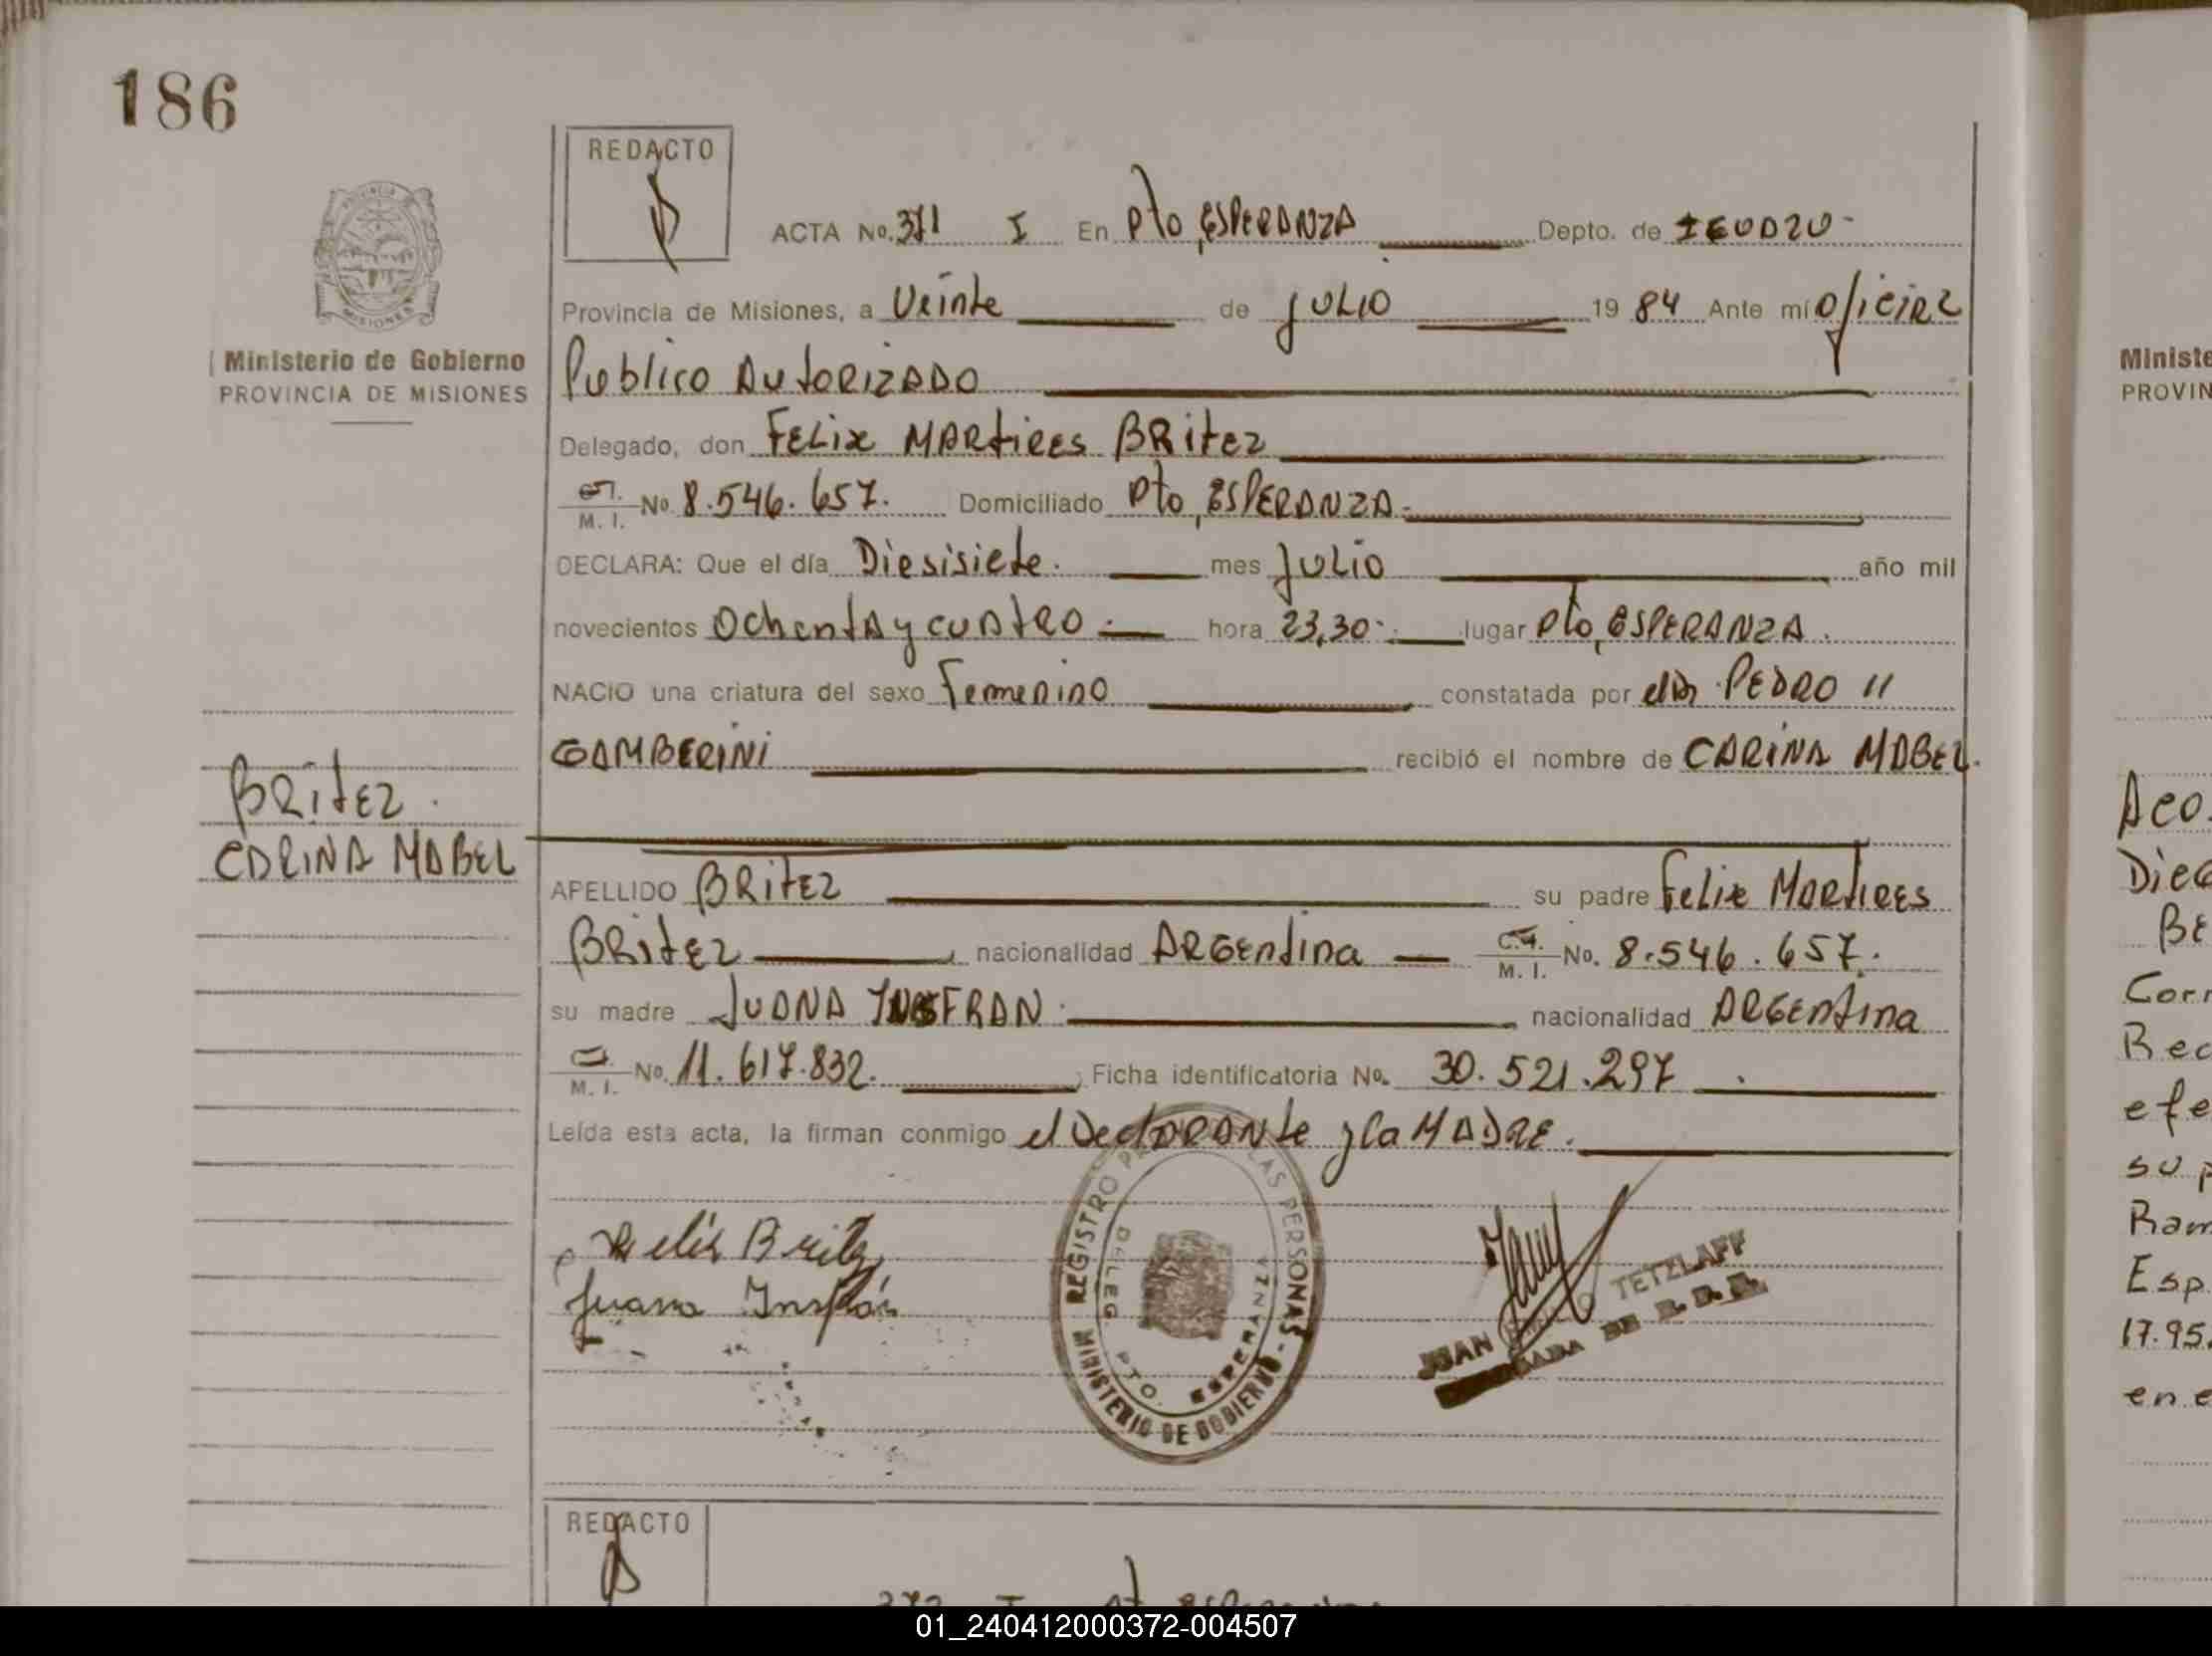 186
REDACTO
ACTA No. 371 I En Pto, ESPERANZA Depto. de IGUAZU
PROVINCIA
MISIONES
Provincia de Misiones, a Veinte de JULIO 1984 Ante mí Oficial
Ministerio de Gobierno
PROVINCIA DE MISIONES
Publico AutoRizADO
Delegado, don FELix MARtiRes BRitez
M. I. No 8.546.657. Domiciliado Pto, ESPERANZA.
DECLARA: Que el día Diesisiete. mes JULio año mil
novecientos OchentA y cuAtRO hora 23,30 lugar Pto, ESPERANZA.
NACIO una criatura del sexo Femenino constatada por el Dr. PEDRO
GAMBERINi recibió el nombre de CARiNA MABEL.
BRitez.
CARINA MABEL
APELLIDO BRitez su padre Felix MARtiRes
BRitez nacionalidad ARGEntina C.I. M. I. No. 8.546.657.
su madre JUANA INSFRAN nacionalidad ARGEntina
M. I. No. 11.617.832. Ficha identificatoria No. 30.521.297
Leída esta acta, la firman conmigo el DeclARANte y la MADRE.
Felix Britez
Juana Insfrán
REGISTRO LAS PERSONAS - MINISTERIO DE GOBIERNO
DELEG. PTO. ESPERANZA
JUAN TETZLAFF
REDACTO
Ministe
PROVIN
Aco
Dieg
BE
Corr
Rec
efe
su p
Ram
Esp
17.95
en e
01_240412000372-004507